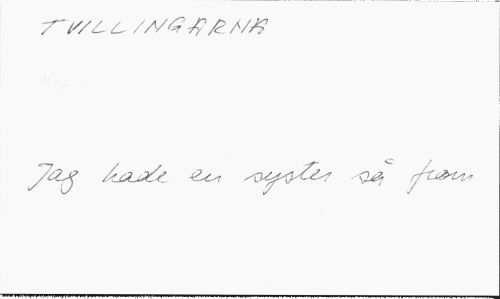 TVILLINGARNA
Jag hade en syster så from